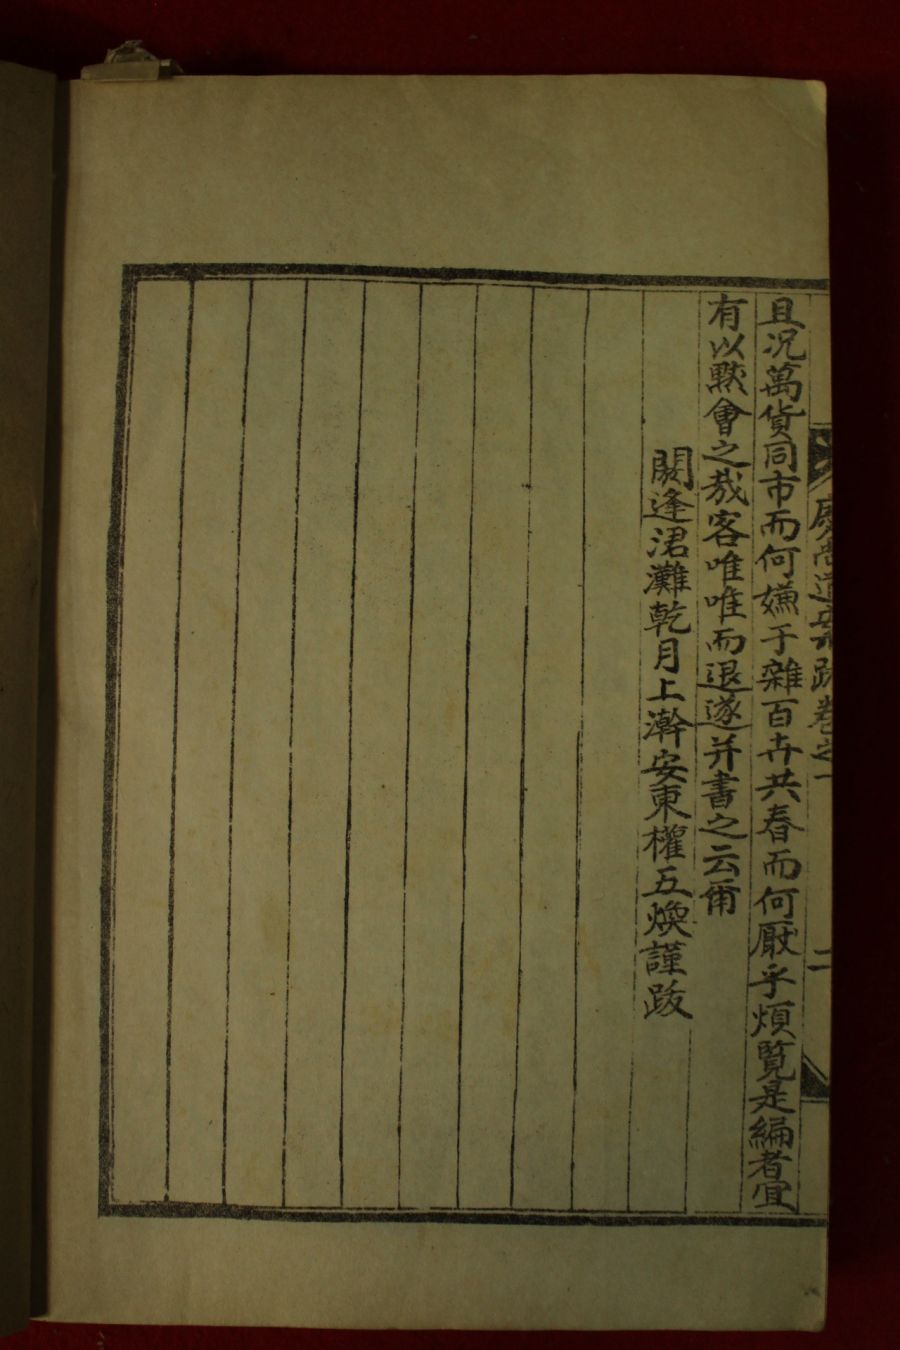 跋卷之一 二
且况萬貨同市而何嫌于雜百卉共春而何厭乎煩覧是編者宜
有以默會之哉客唯唯而退遂并書之云爾
閼逢涒灘乾月上澣安東權五煥謹跋